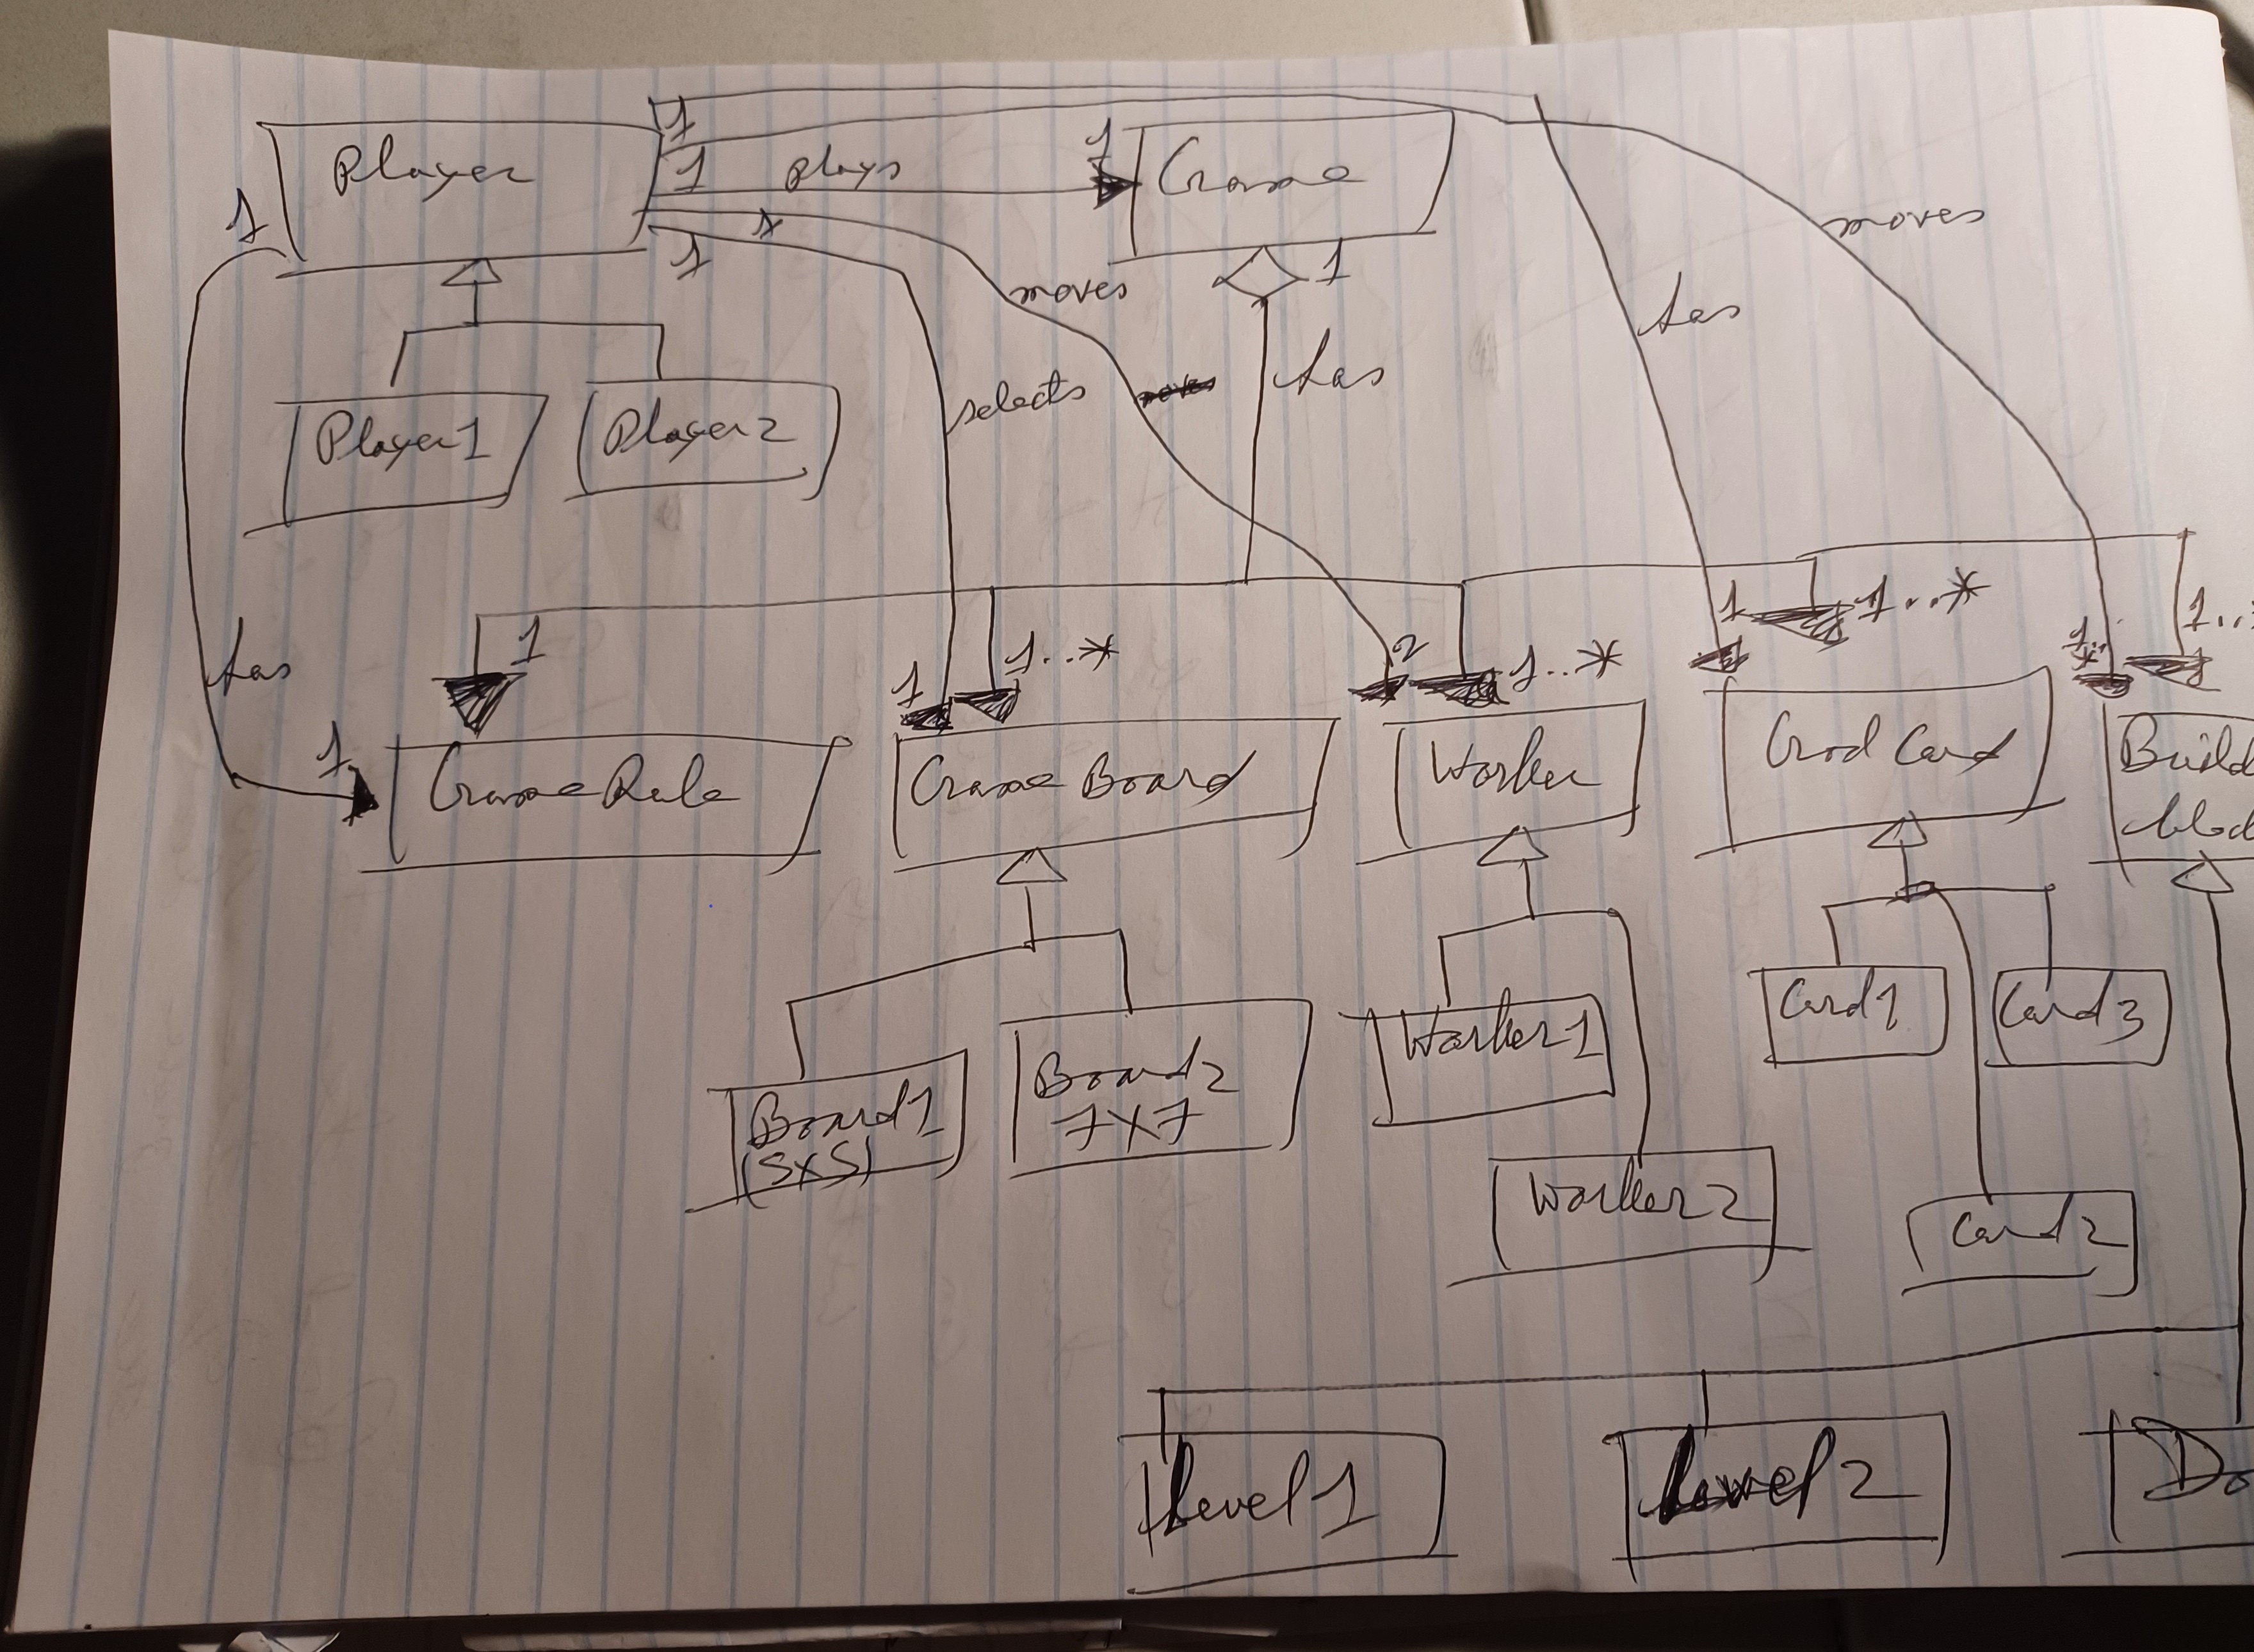 1
Player
1
plays
1
Game
1
1
1
1
moves
moves
has
has
selects
Player1
Player2
has
1
1
1..*
1
2
1..*
1
1..*
1..
1
Game Rule
Game Board
Worker
God Card
Build
block
Board1
(5x5)
Board2
7x7
Worker1
Worker2
Card1
Card3
Card2
Level 1
Level 2
Do